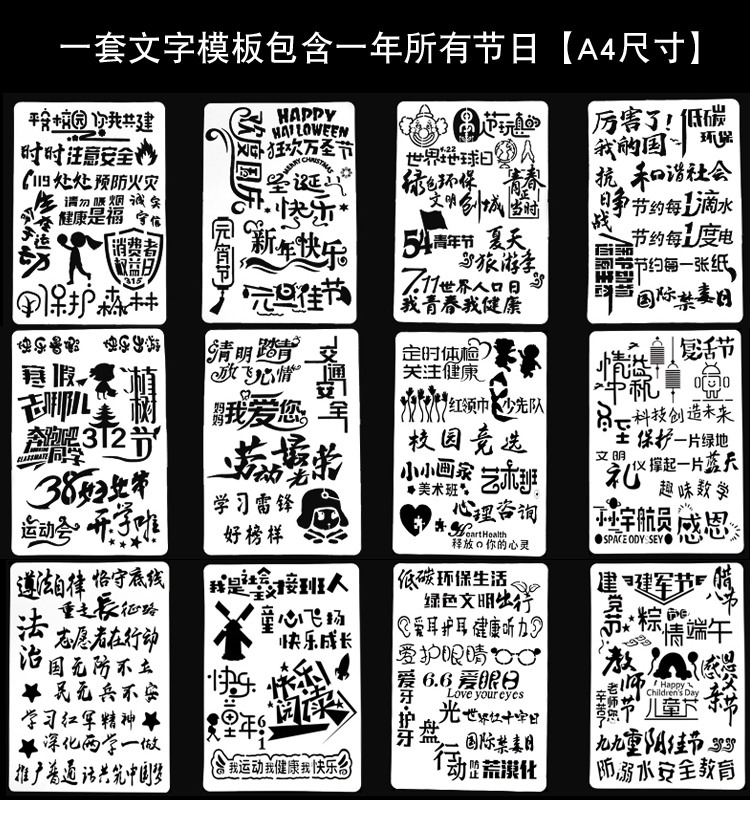 一套文字模板包含一年所有节日【A4尺寸】
平安校园 你我共建
时时注意安全
119处处预防火灾
请勿吸烟
健康是福
诚会
守信
消费者
权益日
315
保护森林
欢度国庆
HAPPY
HALLOWEEN
狂欢万圣节
MERRY CHRISTMAS
圣诞
快乐
元宵节
新年快乐
元旦佳节
节玩真的
4.22
世界地球日
绿色环保
文明
创城
青春
正当时
54青年节
夏天
旅游季
7.11世界人口日
我青春我健康
厉害了!
我的国
低碳
环保
抗日争战
和谐社会
节约每1滴水
节约每1度电
节约每一张纸
保护动物
国际禁毒日
快乐暑假
快乐出游
寒假
去哪儿
植树节
312
奔跑吧
同学
CLASSMATE
38妇女节
运动会
开学啦
清明踏青
放飞心情
交通安全
妈妈
我爱您
劳动最光荣
学习雷锋
好榜样
定时体检
关注健康
红领巾
少先队
校园竞选
小小画家
美术班
艺术班
心理咨询
Heart Health
释放你的心灵
情溢中秋
复活节
科技创造未来
保护一片绿地
文明
礼仪
撑起一片蓝天
趣味数学
宇航员
SPACE ODYSSEY
感恩
遵法自律 恪守底线
重走长征路
法治
志愿者在行动
国无防不立
民无兵不安
学习红军精神
深化两学一做
推广普通话共筑中国梦
我是社会主义接班人
童心飞扬
快乐成长
快乐
童年
6.1
快乐
阅读
我运动我健康我快乐
低碳环保生活
绿色文明出行
爱耳护耳健康听力
爱护眼睛
6.6 爱眼日
Love your eyes
爱牙·护牙
世界红十字日
光盘行动
国际禁毒日
防止荒漠化
建党节
建军节
腊八节
粽情端午
教师节
老师您
辛苦了
Happy
Children's Day
儿童节
感恩父亲节
九九重阳佳节
防溺水安全教育